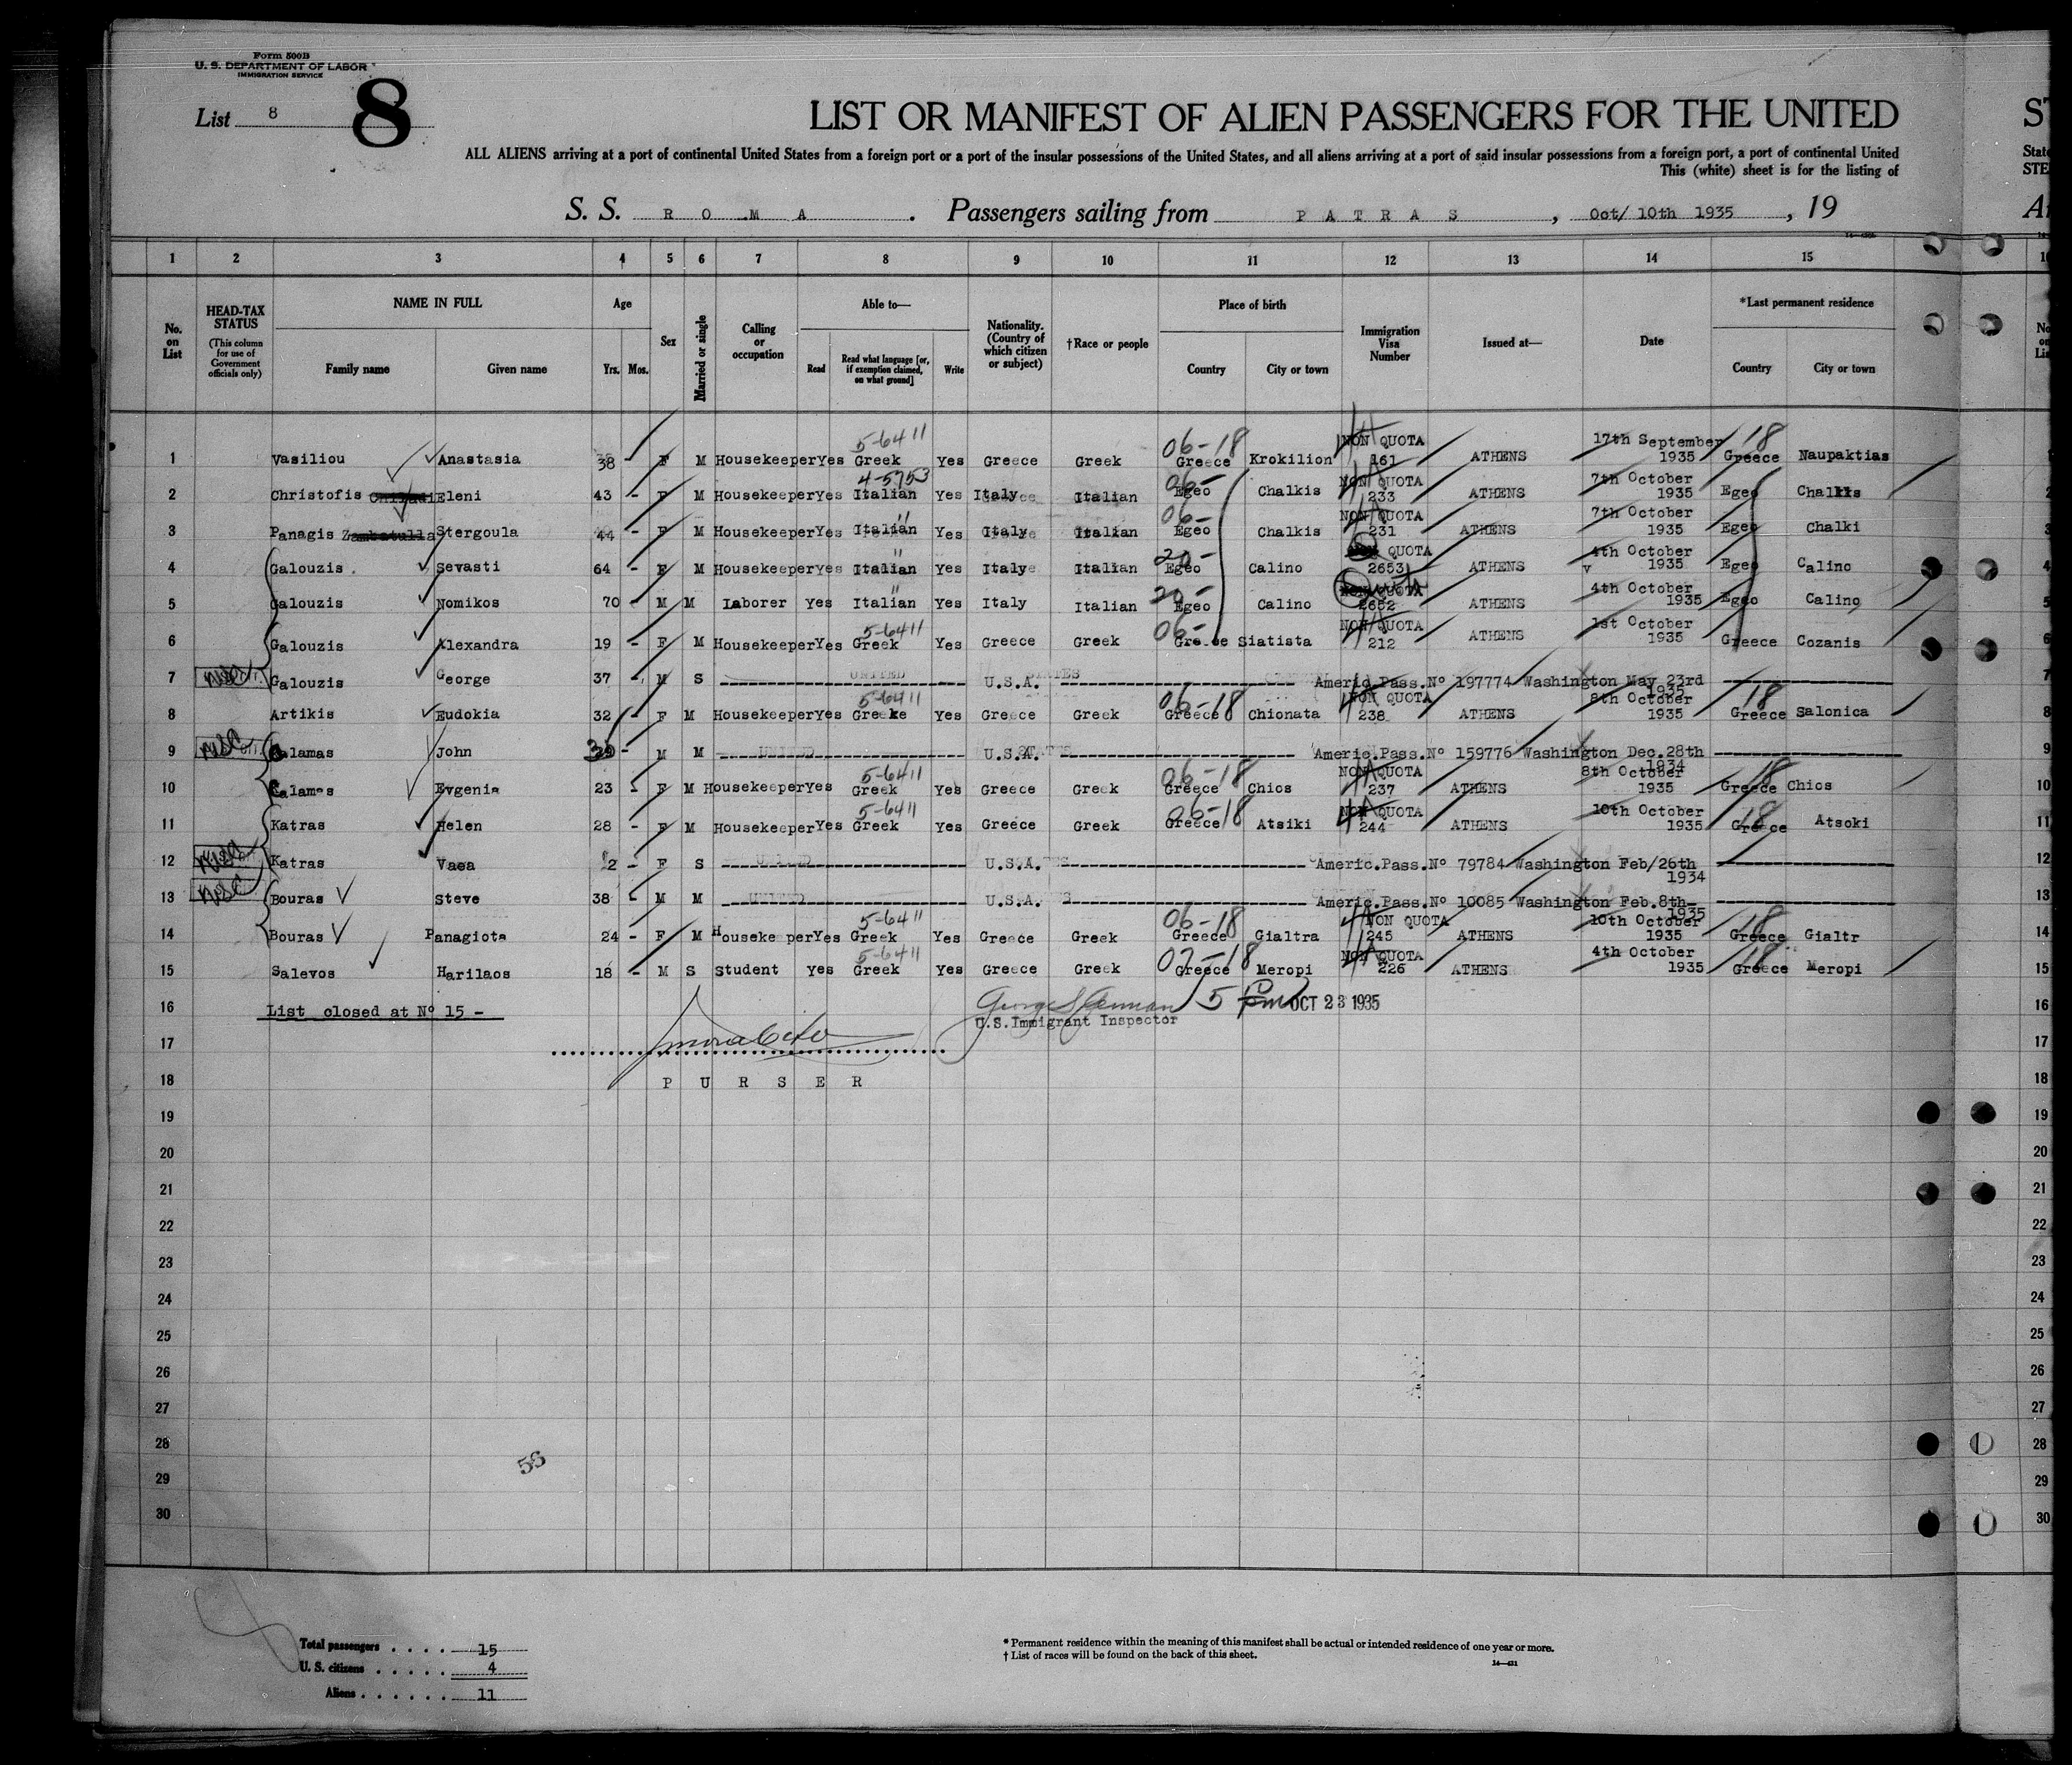 Form 500B
U. S. DEPARTMENT OF LABOR
IMMIGRATION SERVICE
List 8
8
LIST OR MANIFEST OF ALIEN PASSENGERS FOR THE UNITED
ST
ALL ALIENS arriving at a port of continental United States from a foreign port or a port of the insular possessions of the United States, and all aliens arriving at a port of said insular possessions from a foreign port, a port of continental United
State
This (white) sheet is for the listing of
STE
S. S. R O M A . Passengers sailing from P A T R A S , Oct/ 10th 1935 , 19
1 2 3 4 5 6 7 8 9 10 11 12 13 14 15
No. on List
HEAD-TAX STATUS
(This column for use of Government officials only)
NAME IN FULL
Family name Given name
Age
Yrs. Mos.
Sex
Married or single
Calling or occupation
Able to—
Read
Read what language [or, if exemption claimed, on what ground]
Write
Nationality. (Country of which citizen or subject)
†Race or people
Place of birth
Country City or town
Immigration Visa Number
Issued at—
Date
*Last permanent residence
Country City or town
5-6411 06-18 NON QUOTA 17th September 18
1 Vasiliou Anastasia 38 - F M Housekeeper Yes Greek Yes Greece Greek Greece Krokilion 161 ATHENS 1935 Greece Naupaktias
4-5753 06- NON QUOTA 7th October
2 Christofis Eleni 43 - F M Housekeeper Yes Italian Yes Italy Italian Egeo Chalkis 233 ATHENS 1935 Egeo Chalkis
" 06- NON QUOTA 7th October
3 Panagis Zambatulla Stergoula 44 - F M Housekeeper Yes Italian Yes Italy Italian Egeo Chalkis 231 ATHENS 1935 Egeo Chalki
" 20- QUOTA 4th October
4 Galouzis Sevasti 64 - F M Housekeeper Yes Italian Yes Italy Italian Egeo Calino 2653 ATHENS 1935 Egeo Calino
" 20- NON QUOTA Quota 4th October
5 Galouzis Nomikos 70 - M M Laborer Yes Italian Yes Italy Italian Egeo Calino 2652 ATHENS 1935 Egeo Calino
5-6411 06- NON QUOTA 1st October
6 Galouzis Alexandra 19 - F M Housekeeper Yes Greek Yes Greece Greek Greece Siatista 212 ATHENS 1935 Greece Cozanis
7 USC Galouzis George 37 - M S UNITED U.S.A. STATES Americ.Pass.Nº 197774 Washington May 23rd 1935
5-6411 06-18 NON QUOTA 8th October 18
8 Artikis Eudokia 32 - F M Housekeeper Yes Greeke Yes Greece Greek Greece Chionata 238 ATHENS 1935 Greece Salonica
9 USC Calamas John 39 - M M UNITED U.S.A. STATES Americ.Pass.Nº 159776 Washington Dec.28th 1934
5-6411 06-18 NON QUOTA 8th October 18
10 Calamas Evgenia 23 - F M Housekeeper Yes Greek Yes Greece Greek Greece Chios 237 ATHENS 1935 Greece Chios
5-6411 06-18 NON QUOTA 10th October 18
11 Katras Helen 28 - F M Housekeeper Yes Greek Yes Greece Greek Greece Atsiki 244 ATHENS 1935 Greece Atsoki
12 USC Katras Vaea 2 - F S UNITED U.S.A. Americ.Pass.Nº 79784 Washington Feb/26th 1934
13 USC Bouras Steve 38 - M M UNITED U.S.A. Americ.Pass.Nº 10085 Washington Feb.8th 1935
5-6411 06-18 NON QUOTA 10th October 18
14 Bouras Panagiota 24 - F M Houseke per Yes Greek Yes Greece Greek Greece Gialtra 245 ATHENS 1935 Greece Gialtr
5-6411 07-18 NON QUOTA 4th October 18
15 Salevos Harilaos 18 - M S Student Yes Greek Yes Greece Greek Greece Meropi 226 ATHENS 1935 Greece Meropi
16 List closed at Nº 15 - 5 Pm OCT 23 1935
U.S.Immigrant Inspector
17
18 P U R S E R
19
20
21
22
23
24
25
26
27
28
29
56
30
Total passengers . . . . 15
U. S. citizens . . . . . 4
Aliens . . . . . . 11
* Permanent residence within the meaning of this manifest shall be actual or intended residence of one year or more.
† List of races will be found on the back of this sheet.